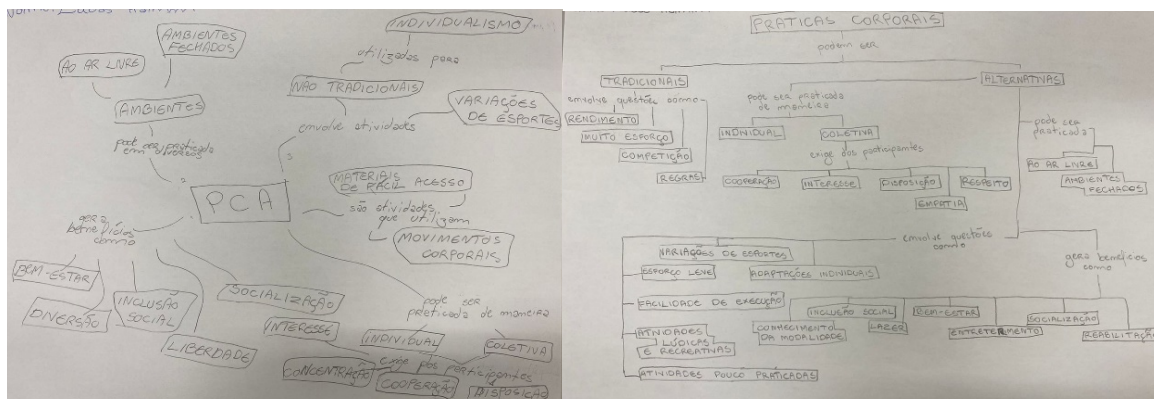 INDIVIDUALISMO
utilizadas para
NÃO TRADICIONAIS
envolve atividades
VARIAÇÕES
DE ESPORTES
AMBIENTES
FECHADOS
AO AR LIVRE
AMBIENTES
pode ser praticada
em
PCA
MATERIAIS
DE FÁCIL ACESSO
são atividades
que utilizam
MOVIMENTOS
CORPORAIS
gera
benefícios
como
BEM-ESTAR
DIVERSÃO
INCLUSÃO
SOCIAL
LIBERDADE
SOCIALIZAÇÃO
INTERESSE
pode ser
praticada de maneira
INDIVIDUAL
COLETIVA
exige dos participantes
CONCENTRAÇÃO
COOPERAÇÃO
DISPOSIÇÃO
PRATICAS CORPORAIS
podem ser
TRADICIONAIS
envolve questões como
RENDIMENTO
MUITO ESFORÇO
COMPETIÇÃO
REGRAS
ALTERNATIVAS
pode ser praticada
de maneira
INDIVIDUAL
COLETIVA
exige dos participantes
COOPERAÇÃO
INTERESSE
DISPOSIÇÃO
EMPATIA
RESPEITO
pode ser
praticada
AO AR LIVRE
AMBIENTES
FECHADOS
envolve questões
como
VARIAÇÕES DE ESPORTES
ESFORÇO LEVE
ADAPTAÇÕES INDIVIDUAIS
FACILIDADE DE EXECUÇÃO
ATIVIDADES
LÚDICAS
E RECREATIVAS
ATIVIDADES POUCO PRÁTICADAS
CONHECIMENTO
DA MODALIDADE
gera benefícios
como
INCLUSÃO SOCIAL
LAZER
BEM-ESTAR
ENTRETERIMENTO
SOCIALIZAÇÃO
REABILITAÇÃO